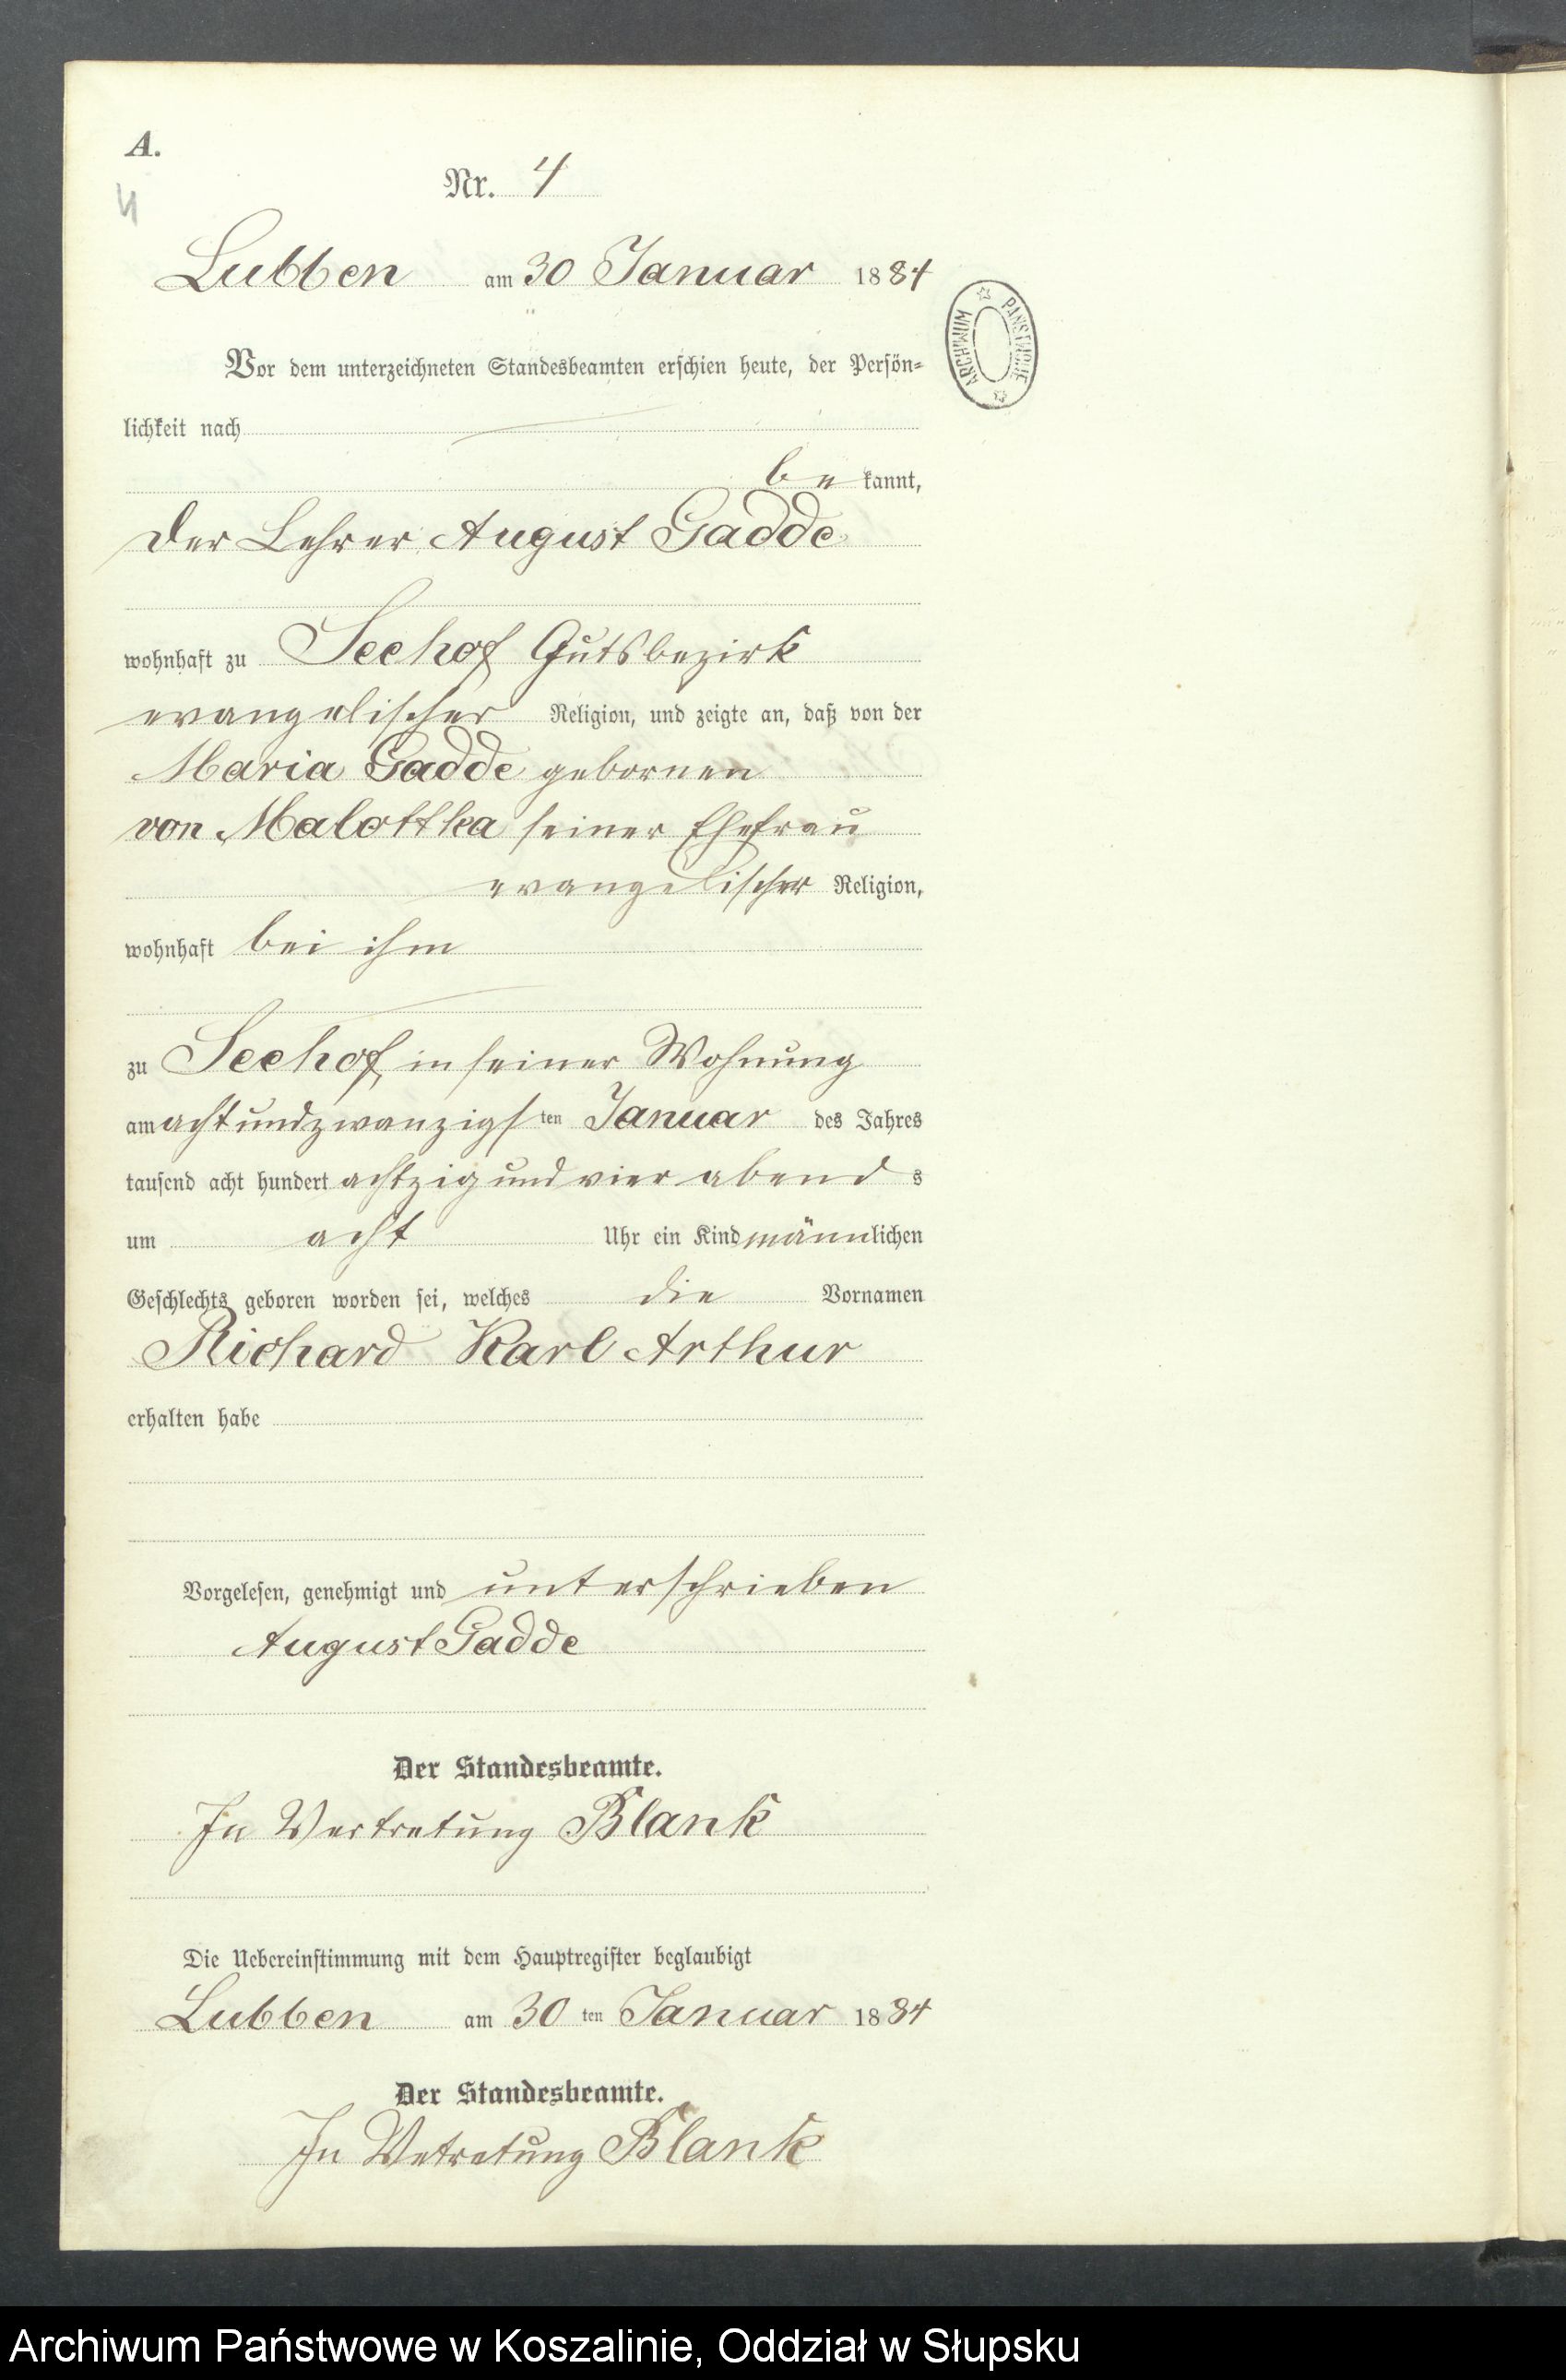 A.
4
Nr. 4
Lubben am 30 Januar 1884
Vor dem unterzeichneten Standesbeamten erschien heute, der Persön-
lichkeit nach
be kannt,
der Lehrer August Gadde
wohnhaft zu Seehof Gutsbezirk
evangelischer Religion, und zeigte an, daß von der
Maria Gadde gebornen
von Malottka seiner Ehefrau
evangelischer Religion,
wohnhaft bei ihm
zu Seehof, in seiner Wohnung
am achtundzwanzigsten Januar des Jahres
tausend acht hundert achtzig und vier abends
um acht Uhr ein Kind männlichen
Geschlechts geboren worden sei, welches die Vornamen
Richard Karl Arthur
erhalten habe
Vorgelesen, genehmigt und unterschrieben
August Gadde
Der Standesbeamte.
In Vertretung Blank
Die Uebereinstimmung mit dem Hauptregister beglaubigt
Lubben am 30 ten Januar 1884
Der Standesbeamte.
In Vetretung Blank
ARCHIWUM PAŃSTWOWE
Archiwum Państwowe w Koszalinie, Oddział w Słupsku